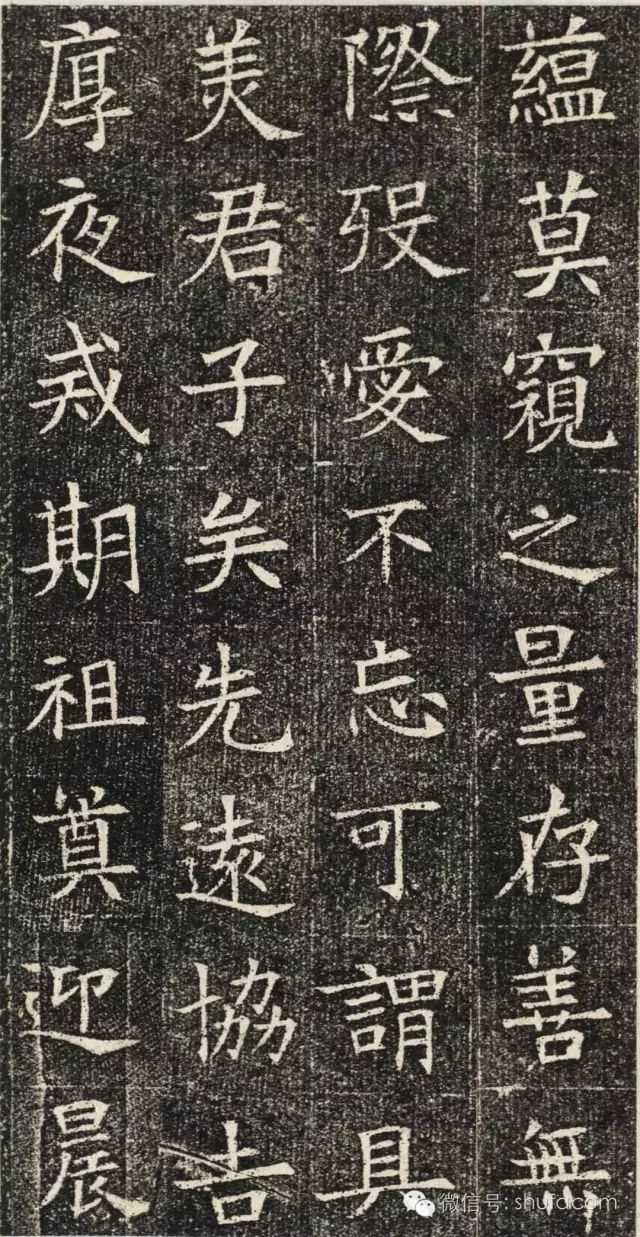 蕴莫窺之量存善無
際殁愛不忘可謂具
美君子矣先遠協吉
厚夜戒期祖奠迎晨
微信号: shufd.com